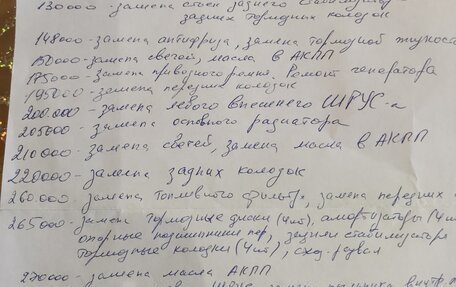 130000 - замена стоек заднего стабилизатор
задних тормозных колодок
148000 - замена антифриза, замена тормозной жидкост
150000 - замена свечей, масла в АКПП
175000 - замена приводного ремня. Ремонт генератора
195000 - замена передних колодок
200.000 - замена левого внешнего ШРУС-а
205000 - замена основного радиатора
210000 - замена свечей, замена масла в АКПП
220000 - замена задних колодок
260000 - замена топливного фильтр, замена передних
265000 - замена тормозные диски (4шт), амортизаторы (4ш
опорные подшипники пер, задний стабилизатора
тормозные колодки (4шт), сход-развал
270000 - замена масла АКПП